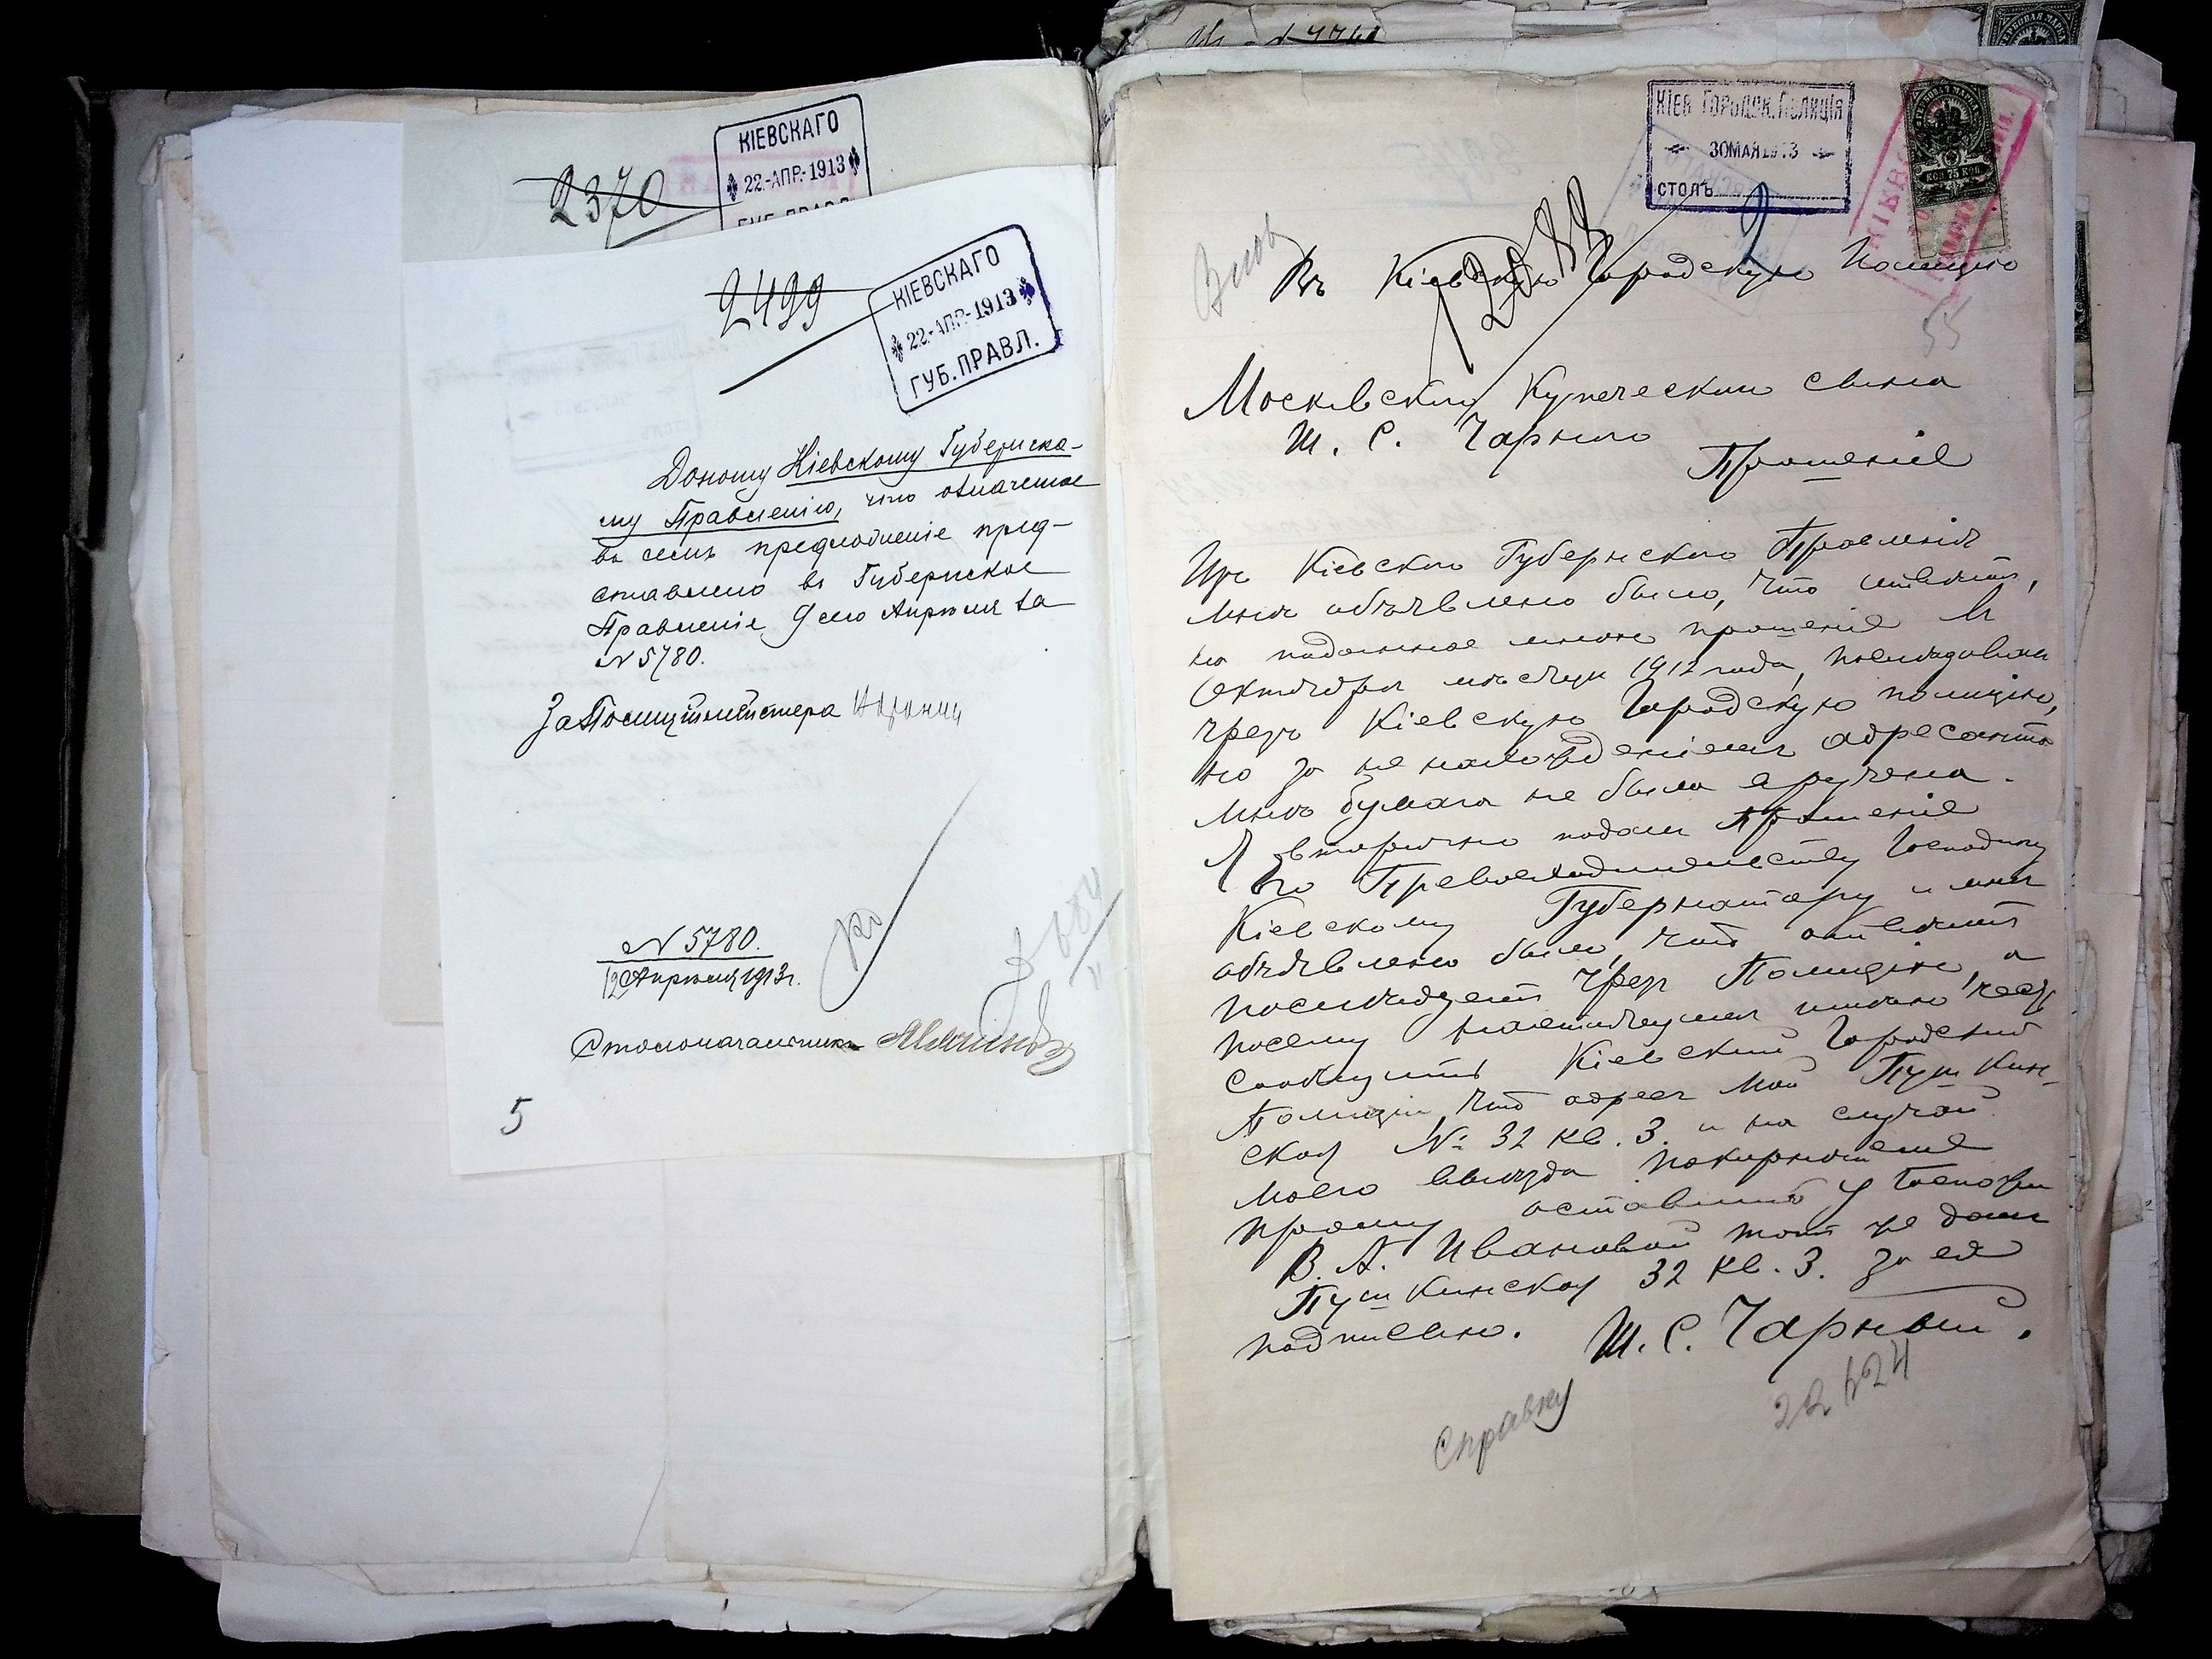 2370
КІЕВСКАГО
22.-АПР.-1913
ГУБ.ПРАВЛ.
2499
КІЕВСКАГО
22.-АПР.-1913
ГУБ.ПРАВЛ.
Доношу Кіевскому Губернска-
му Правленію, что означенное
въ семъ предложеніе пред-
ставлено въ Губернское
Правленіе 9 сего Апрѣля за
N 5780.
За Полицiймейстера
N 5780.
12 Апрѣля 1913 г.
Столоначальникъ
5
КІЕВ ГОРОДСК. ПОЛИЦІЯ
30 МАЯ 1913
СТОЛЪ
КОП 75 КОП
55
Въ Кіевскую Городскую Полицію
Московскаго Купеческаго сына
Ш. С. Чарнаго
Прошеніе
Изъ Кіевскаго Губернскаго Правленія
мнѣ объявлено было, что отвѣтъ,
на поданное мною прошеніе въ
Октябрѣ мѣсяцѣ 1912 года, послѣдовалъ
чрезъ Кіевскую Городскую полицію,
но за не нахожденіемъ адресанта
мнѣ бумага не была вручена.
Я вторично подалъ прошеніе
Его Превосходительству Господину
Кіевскому Губернатору и мнѣ
объявлено было, что отвѣтъ
послѣдуетъ чрезъ Полицію, а
посему настоящимъ имѣю честь
сообщить Кіевской Городской
Полиціи, что адресъ мой Пушкин-
ская № 32 кв. 3. и на случай
моего выѣзда покорнѣйше
прошу оставить у Госпожи
В. А. Ивановой тотъ же домъ
Пушкинская 32 кв. 3. за ея
подписью. Ш. С. Чарный.
Справку